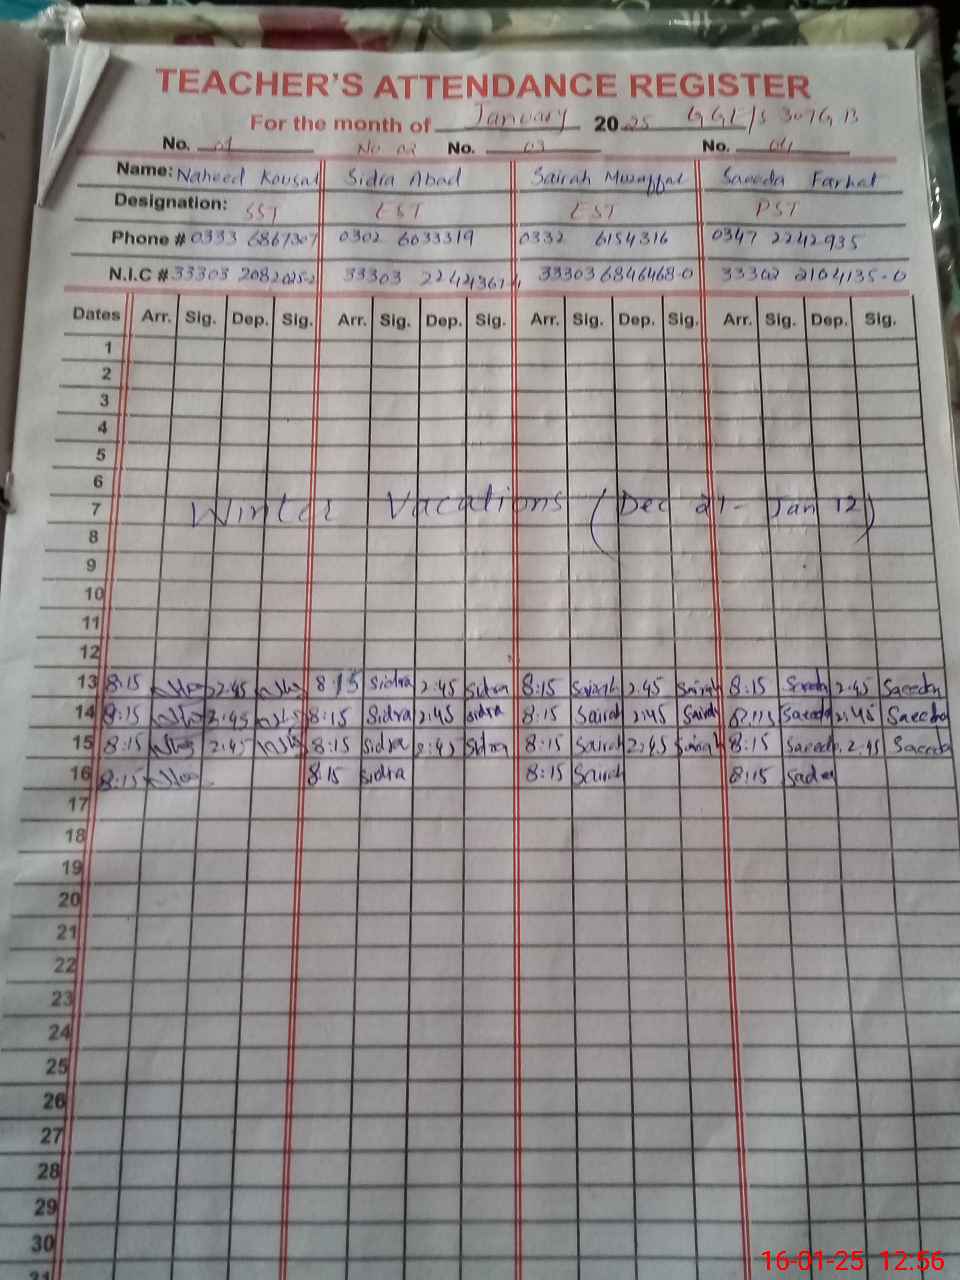 TEACHER'S ATTENDANCE REGISTER
For the month of January 2025 GGE/S 307GB
No. 01 No 02 No. 03 No. 04
Name: Naheed Kousal Sidra Abad Sairah Muzaffal Saeeda Farhat
Designation: SST EST EST PST
Phone # 0333 6867307 0302 6033319 0332 6154316 0347 2242935
N.I.C # 33303 33303 33303 6846468-0 33302 2104135-0
Dates Arr. Sig. Dep. Sig. Arr. Sig. Dep. Sig. Arr. Sig. Dep. Sig. Arr. Sig. Dep. Sig.
1
2
3
4
5
6
7 Winter Vacations (Dec 21 - Jan 12)
8
9
10
11
12
13 8:15 2:45 8:15 Sidra 2:45 Sidra 8:15 Sairah 2:45 Sairah 8:15 Saeeda 2:45 Saeeda
14 8:15 2:45 8:15 Sidra 2:45 Sidra 8:15 Sairah 2:45 Sairah 8:15 Saeeda 2:45 Saeeda
15 8:15 2:45 8:15 Sidra 2:45 Sidra 8:15 Sairah 2:45 Sairah 8:15 Saeeda 2:45 Saeeda
16 8:15 8:15 Sidra 8:15 Sairah 8:15
17
18
19
20
21
22
23
24
25
26
27
28
29
30
31
16-01-25 12:56